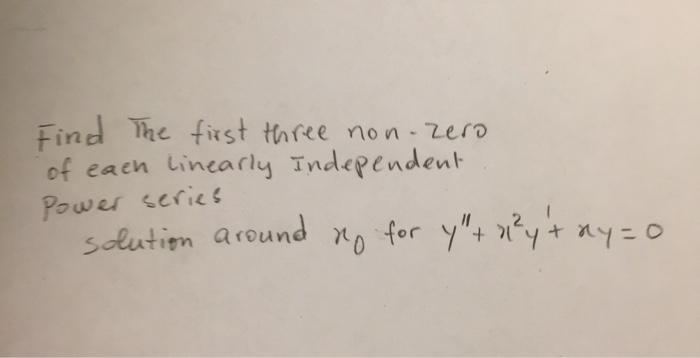 Find The first three non-zero
of each Linearly Independent
Power series
solution around x₀ for y" + x²y' + xy = 0